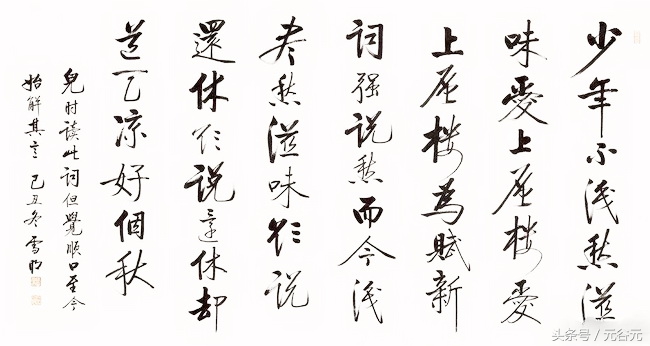 少年不識愁滋
味愛上層樓愛
上層樓為賦新
詞强說愁而今識
盡愁滋味欲說
還休欲說還休却
道天凉好個秋
兒时读此词但覺順口至今
始解其言己丑冬雪
头条号 / 元谷元